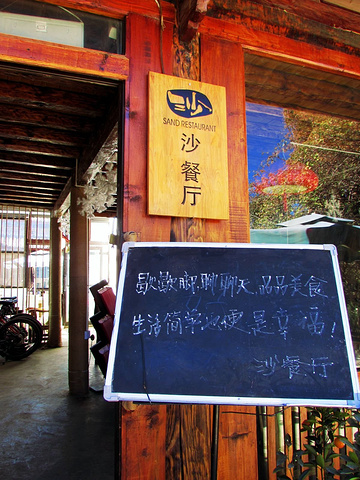 沙
SAND RESTAURANT
沙餐厅
歇歇脚.聊聊天.品品美食.
生活简单便是幸福!
沙餐厅